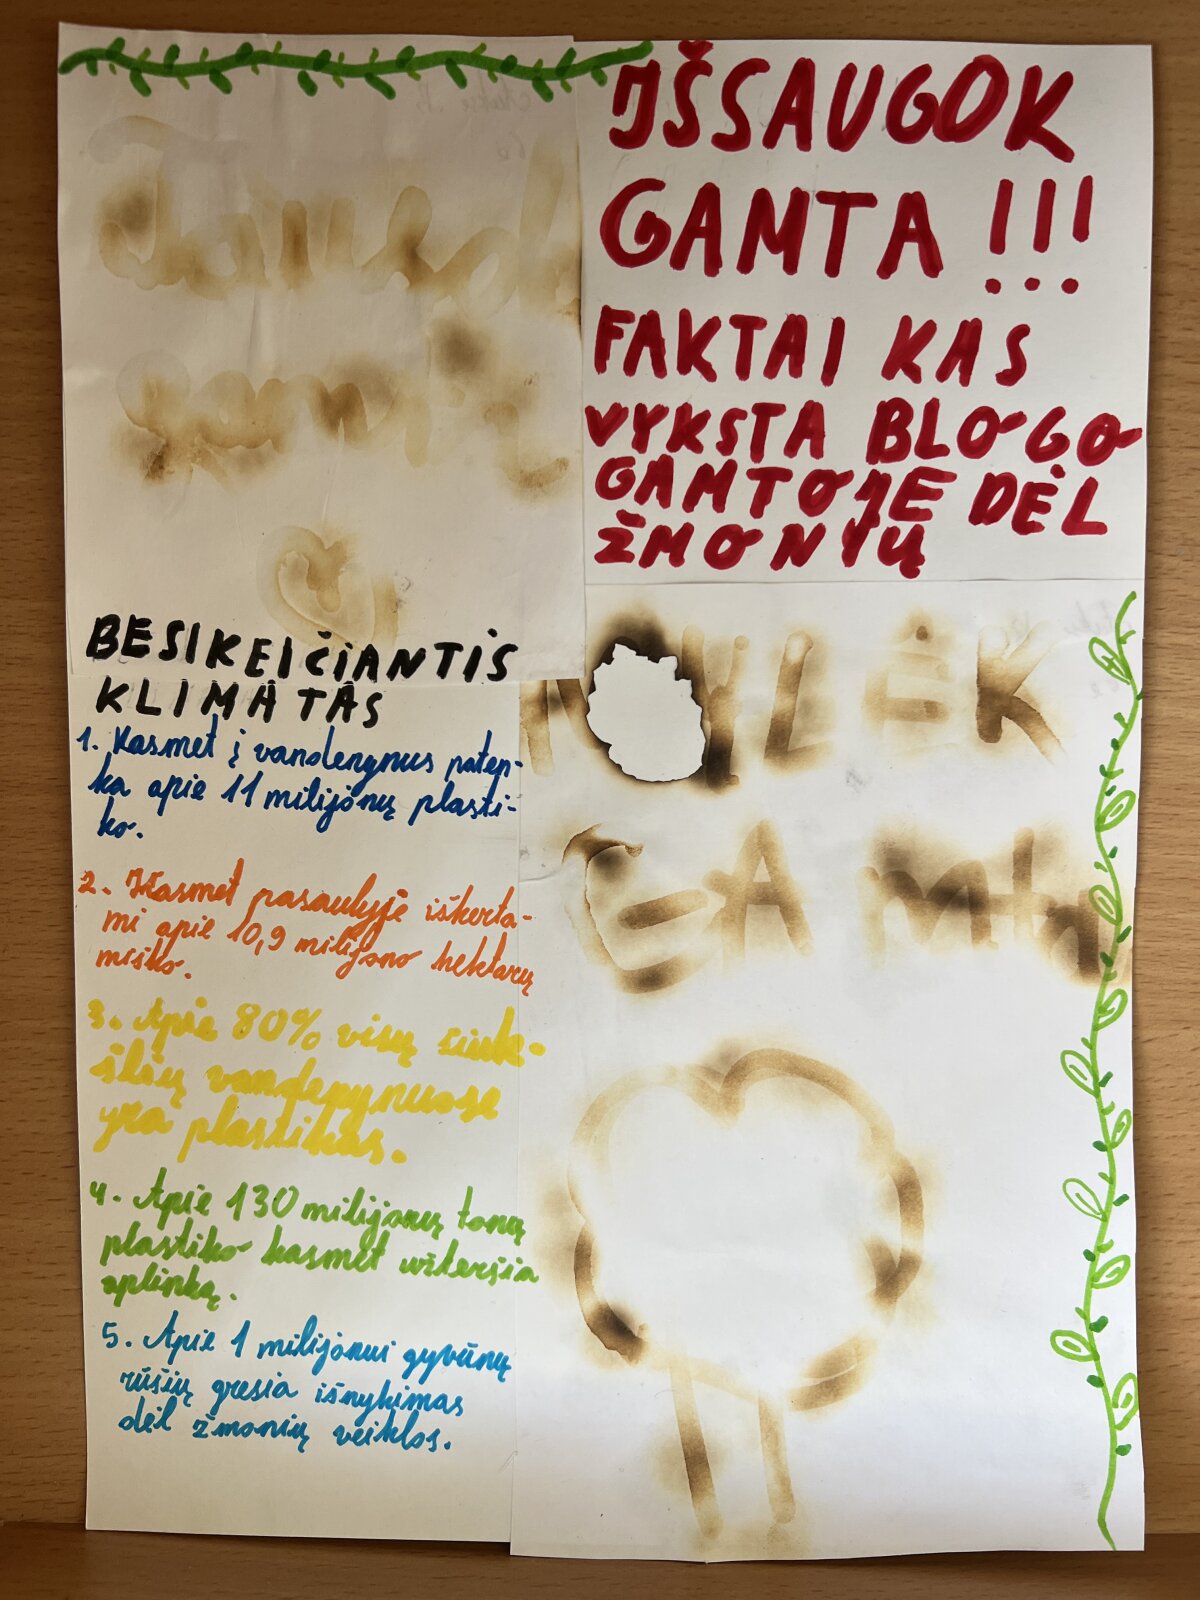 IŠSAUGOK
GAMTA !!!
FAKTAI KAS
VYKSTA BLOGO
GAMTOJE DĖL
ŽMONIŲ
BESIKEIČIANTIS
KLIMATAS
1. Kasmet į vandenynus paten-
ka apie 11 milijonų plasti-
ko.
2. Kasmet pasaulyje iškerta-
mi apie 10,9 milijono hektarų
miško.
3. Apie 80% visų šiuk-
šlių vandenynuose
yra plastikas.
4. Apie 130 milijonų tonų
plastiko kasmet užteršia
aplinką.
5. Apie 1 milijonui gyvūnų
rūšių gresia išnykimas
dėl žmonių veiklos.
MYLĖK
GAMtą